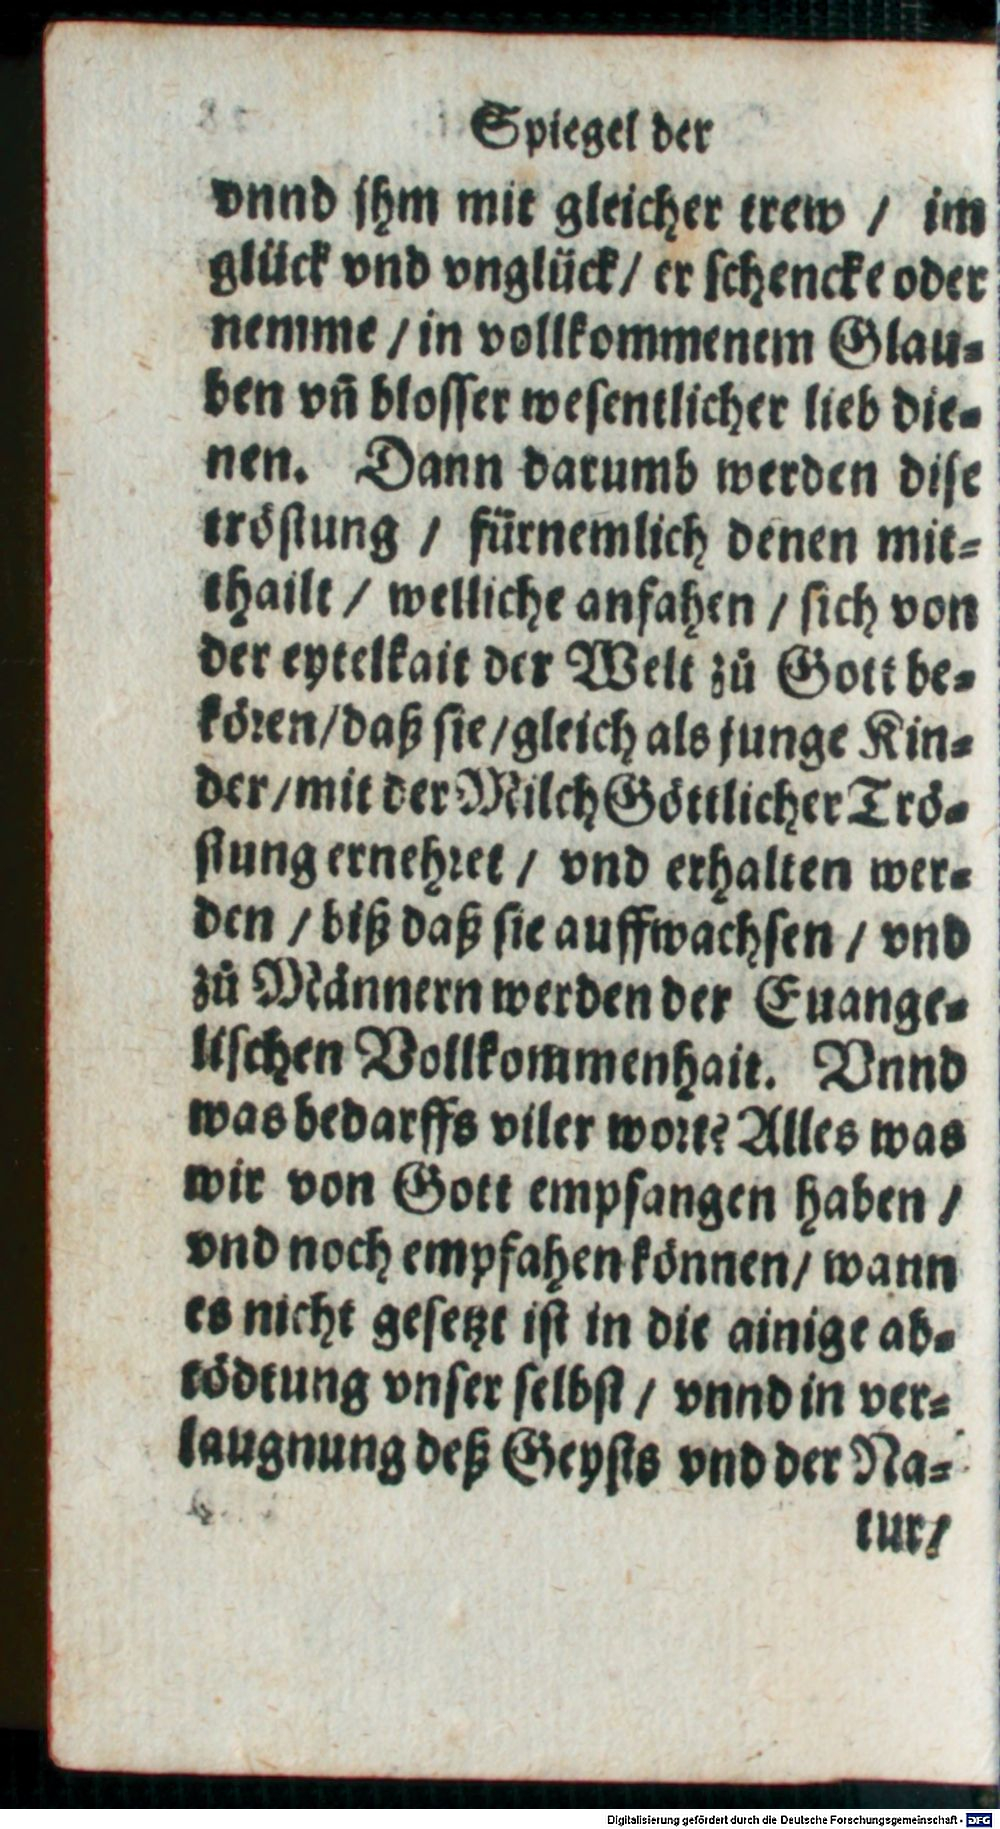 Spiegel der
vnnd jhm mit gleicher trew / im
glück vnd vnglück / er schencke oder
nemme / in vollkommenem Glau-
ben vn̄ blosser wesentlicher lieb die-
nen. Dann darumb werden dise
tröstung / fürnemlich denen mit-
thailt / welliche anfahen / sich von
der eytelkait der Welt zů Gott be-
kören / daß sie / gleich als junge Kin-
der / mit der Milch Göttlicher Trö-
stung ernehret / vnd erhalten wer-
den / biß daß sie auffwachsen / vnd
zů Männern werden der Euange-
lischen Vollkommenhait. Vnnd
was bedarffs viler wort? Alles was
wir von Gott empfangen haben /
vnd noch empfahen können / wann
es nicht gesetzt ist in die ainige ab-
tödtung vnser selbst / vnnd in ver-
laugnung deß Geysts vnd der Na-
tur /
Digitalisierung gefördert durch die Deutsche Forschungsgemeinschaft - DFG